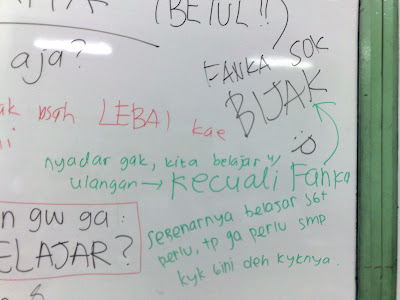 (BETUL!!)
aja?
FANKA SOK
BIJAK
usah LEBAI kae
:D
nyadar gak, kita belajar u/
ulangan → kecuali Fanka
n gw ga :
ELAJAR?
sebenarnya belajar sgt
perlu, tp ga perlu smp
kyk gini deh kyknya.